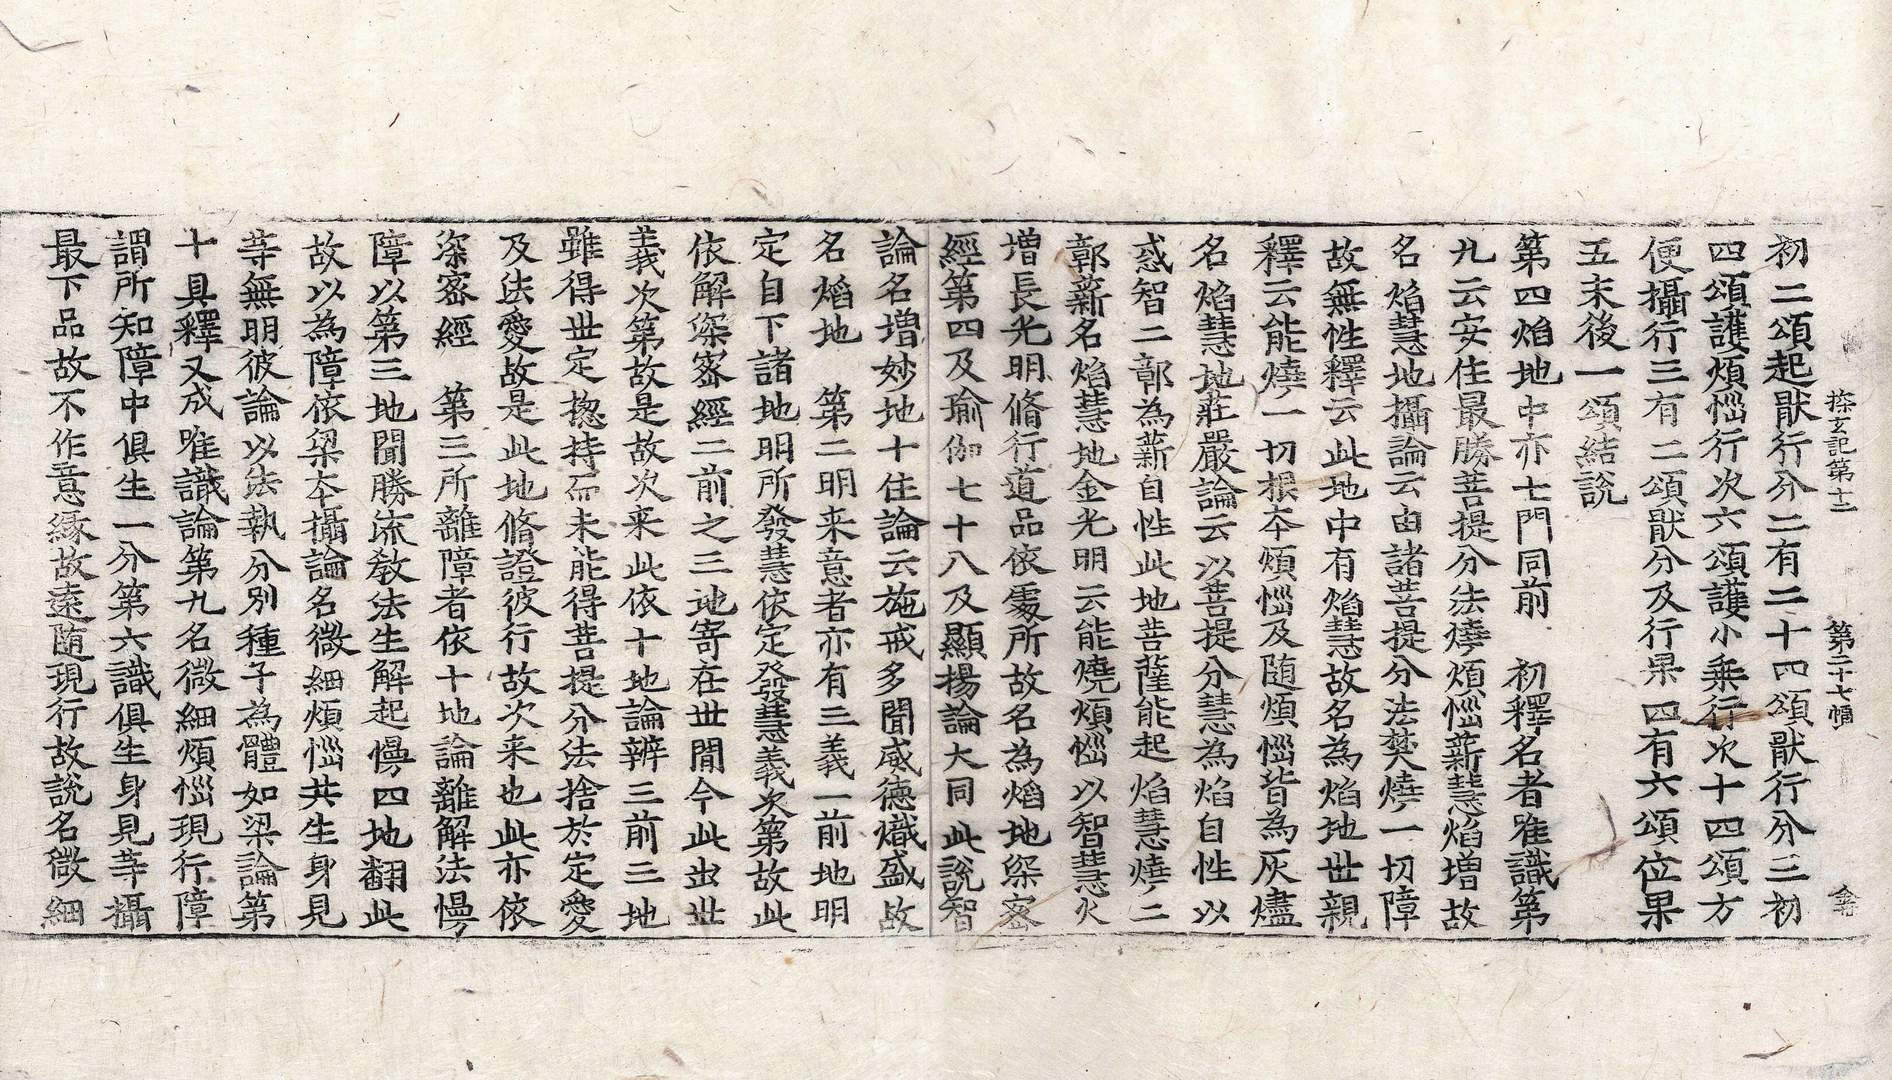 探玄記第十三　第二十七幅
初二頌起猒行分二有二十四頌猒行分三初
四頌護煩惱行次六頌護小乗行次十四頌方
便攝行三有二頌猒分及行果四有六頌位果
五末後一頌結說
第四焰地中亦七門同前　初釋名者唯識第
九云安住最勝菩提分法燒煩惱薪慧焰增故
名焰慧地攝論云由諸菩提分法焚燒一切障
故無性釋云此地中有焰慧故名為焰地世親
釋云能燒一切根本煩惱及随煩惱皆為灰燼
名焰慧地莊嚴論云以菩提分慧為焰自性以
惑智二鄣為薪自性此地菩薩能起焰慧燒二
鄣薪名焰慧地金光明云能燒煩惱以智慧火
增長光明脩行道品依處所故名為焰地深密
經第四及瑜伽七十八及顯揚論大同此說智
論名增妙地十住論云施戒多聞威德熾盛故
名焰地　第二明来意者亦有三義一前地明
定自下諸地明所發慧依定發慧義次第故此
依解深密經二前之三地寄在世間今此出世
義次第故是故次来此依十地論辨三前三地
雖得世定揔持而未能得菩提分法捨於定愛
及法愛故是此地脩證彼行故次来也此亦依
深密經　第三所離障者依十地論離解法慢
障以第三地聞勝流教法生解起慢四地翻此
故以為障依梁本攝論名微細煩惱共生身見
等無明彼論以法執分別種子為體如梁論第
十具釋又成唯識論第九名微細煩惱現行障
謂所知障中俱生一分第六識俱生身見等攝
最下品故不作意緣故遠随現行故說名微細